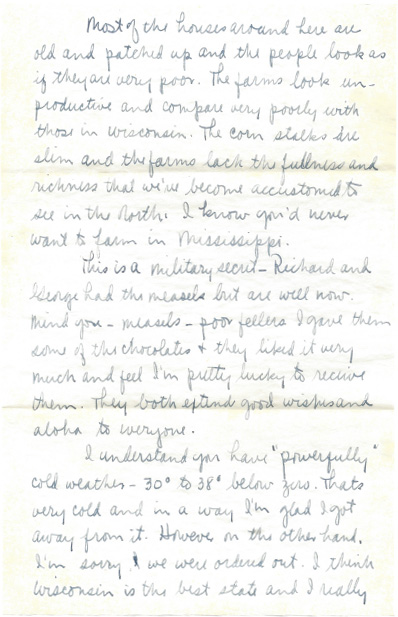 Most of the houses around here are
old and patched up and the people look as
if they are very poor. The farms look un-
productive and compare very poorly with
those in Wisconsin. The corn stalks are
slim and the farms lack the fullness and
richness that we've become accustomed to
see in the North. I know you'd never
want to farm in Mississippi.
This is a military secret - Richard and
George had the measels but are well now.
Mind you - measels - poor fellers I gave them
some of the chocolates + they liked it very
much and feel I'm pretty lucky to receive
them. They both extend good wishes and
aloha to everyone.
I understand you have "powerfully"
cold weather - 30° to 38° below zero. Thats
very cold and in a way I'm glad I got
away from it. However on the other hand,
I'm sorry we were ordered out. I think
Wisconsin is the best state and I really